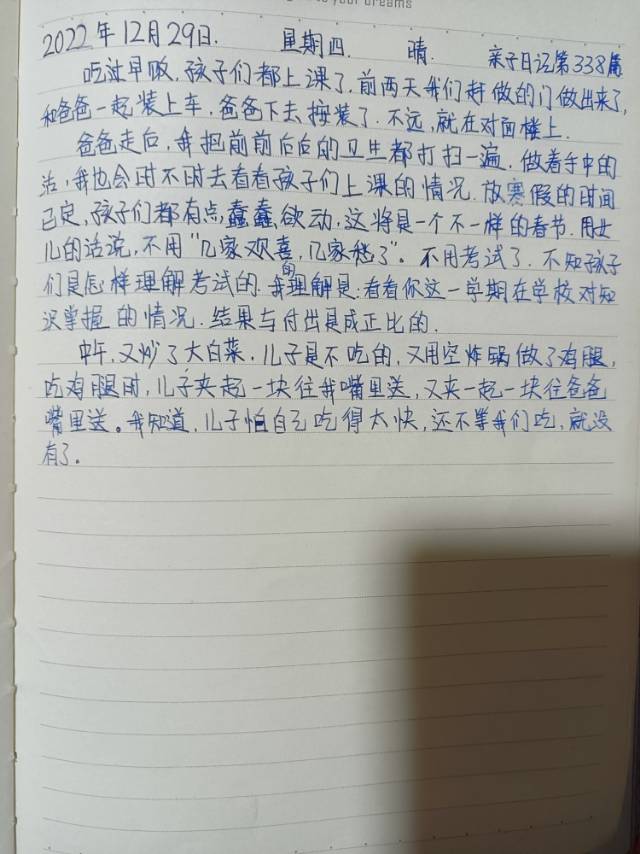 to your dreams
2022年12月29日. 星期四 晴. 亲子日记第338篇
吃过早饭,孩子们都上课了,前两天我们赶做的门做出来了,
和爸爸一起装上车,爸爸下去按装了.不远,就在对面楼上.
爸爸走后,我把前前后后的卫生都打扫一遍.做着手中的
活,我也会时不时去看看孩子们上课的情况.放寒假的时间
已定,孩子们都有点蠢蠢欲动,这将是一个不一样的春节.用女
儿的话说,不用“几家欢喜,几家愁了”.不用考试了.不知孩子
们是怎样理解考试的.我的理解是:看看你这一学期在学校对知
识掌握的情况.结果与付出是成正比的.
中午,又炒了大白菜.儿子是不吃的,又用空炸锅做了鸡腿,
吃鸡腿时,儿子夹起一块往我嘴里送,又夹一起一块往爸爸
嘴里送。我知道,儿子怕自己吃得太快,还不等我们吃,就没
有了.